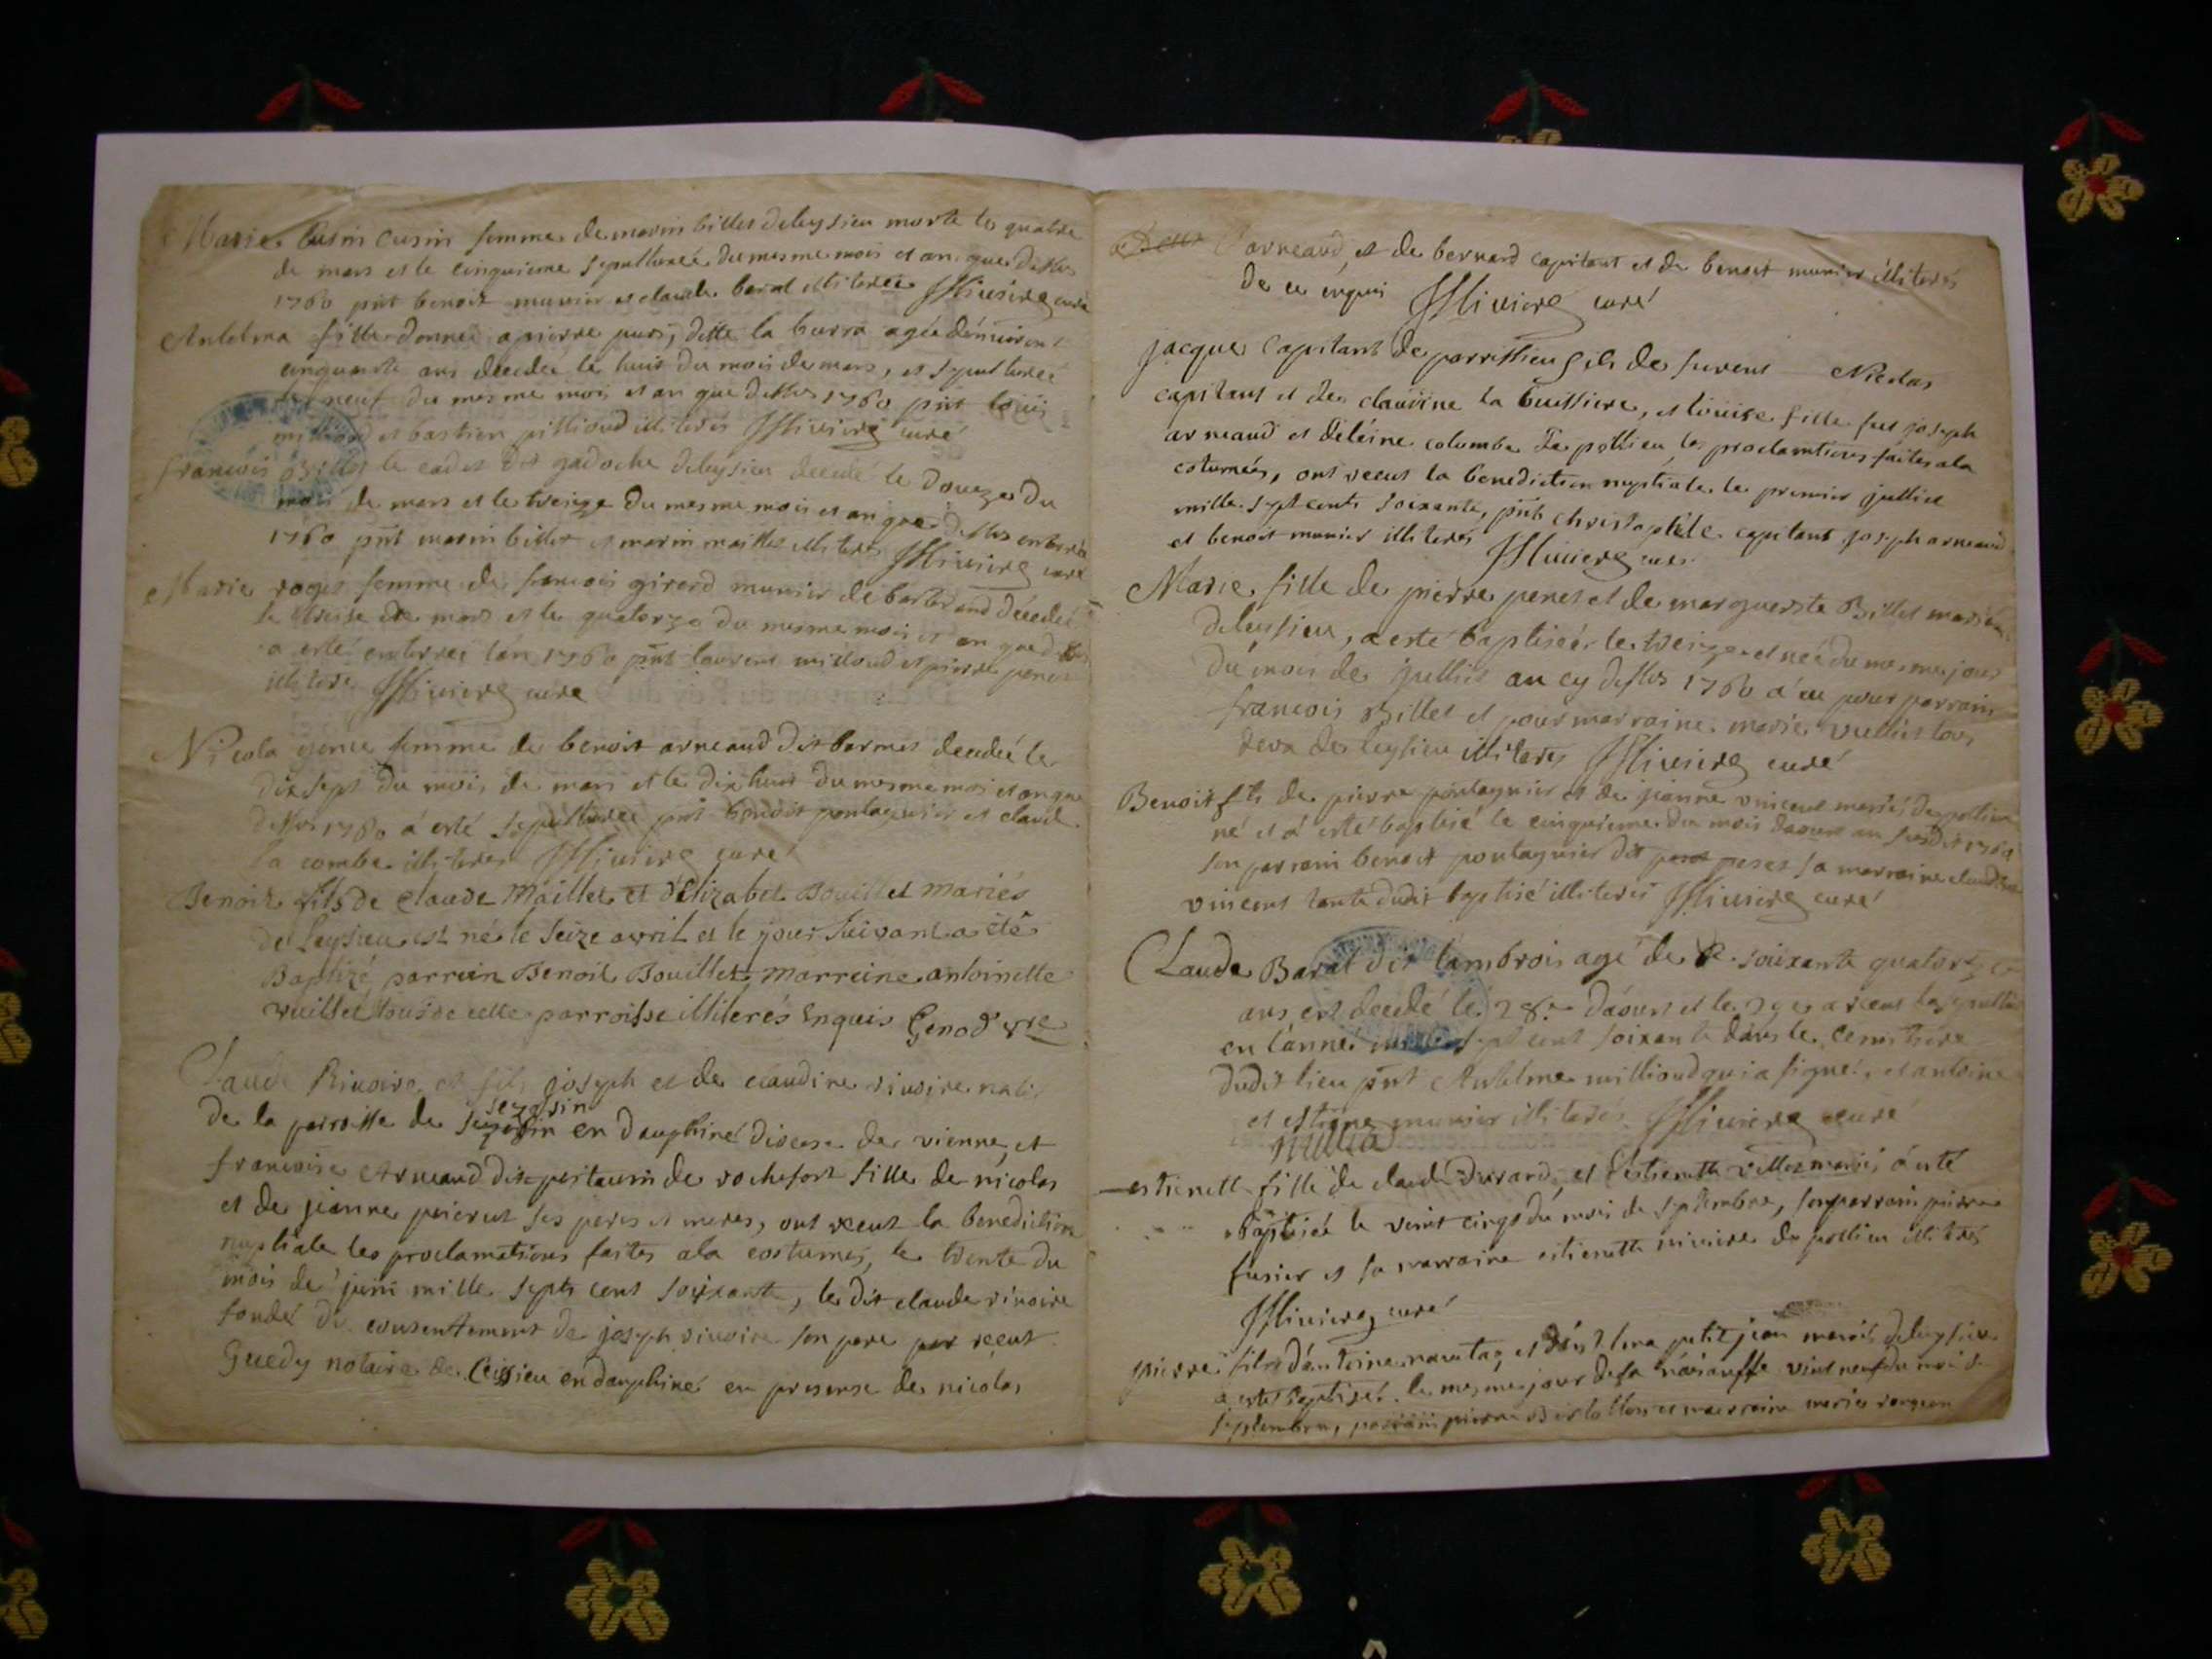 Marie Cusin Cusin femme de marin billet deleysieu morte le quatre
de mars et le cinquieme sepulturée du mesme mois et an que dessus
1760 pnt benoit munier et claude barat illiteres JRivoire curé
Antelma fille donnée a pierre ditte la burra agée d'environt
cinquante ans decedée le huit du mois de mars, et sepulturée
le neuf du mesme mois et an que dessus 1760 pnt louis
millioud et bastien pillioud illiteres JRivoire curé
francois Billet le cadet dit gadoche deleysieu decedé le douze du
mois de mars et le treize du mesme mois et an que dessus enterré
1760 pnt marin billet et marin maillet illiteres JRivoire curé
Marie roget femme de francois girerd munier de barterand décedée
le treise de mars et le quatorze du mesme mois et an que dessus
a esté enterrée l'an 1760 pnt laurent millioud et pierre penet
illiteres JRivoire curé
Nicola femme de benoit arneaud dit barmet decedée le
dix sept du mois de mars et le dix huit du mesme mois et an que
dessus 1760 a esté sepulturée pnt benoit pontagnier et claude
la combe illiteres JRivoire curé
Benoit fils de Claude Maillet et d'Elizabet Bouillet Mariés
de Leysieu est né le seize avril et le jour suivant a été
Baptizé parrein Benoit Bouillet marreine antoinette
vuillet tous de cette parroisse illiterés Enquis Genod vre
Claude Rivoire et fils joseph et de claudine rivoire natif
de la parroisse de sezessin en dauphiné diocese de vienne, et
sezasin
francoise Arneaud dit pertausin de rochefort fille de nicolas
et de jeanne ses peres et meres, ont receut la benediction
nuptiale les proclamations faites a la costumée, le trente du
mois de juin mille septs cent soixante, le dit claude rivoire
fondé du consentement de joseph rivoire son pere par receut
Guedy notaire de Ceissieu en dauphiné en presense de nicolas
arneaud, et de bernard capitant et de benoit munier illiterés
de ce enquis JRivoire curé
jacque Capitant de parrissieu fils de furent Nicolas
capitant et de claudine la buissiere, et louise fille fut joseph
arneaud et deléine columba de pollieu les proclamations faites a la
coturnées, ont receut la benediction nuptiale le premier jullict
mille sept cents soixante, pnts christophle capitant joseph arneaud
et benoit munier illiterés JRivoire curé
Marie fille de pierre penet et de marguerite Billet mariés
deleysieu, a esté baptisée le treize et née du mesme jour
du mois de jullict an cy dessus 1760 a eu pour parrain
francois Billet et pour marraine marie vuillet tous
deux de leysieu illiteres JRivoire curé
Benoit fils de pierre pontagnier et de jeanne vincent mariés de pollieu
né et a esté baptisé le cinquieme du mois d'aoust an susdit 1760
son parrain benoit pontagnier dit peset sa marraine claudine
vincent tante dudit baptisé illiteres JRivoire curé
Claude Barat dit l'ambrois agé de soixante quatorze
ans est decedé le 28e d'aoust et le 29e a receut la sepulture
en l'année mille sept cent soixante dans le cemitiere
dudit lieu pnt Antelme millioud qui a signé, et antoine
et estiene munier illiterés JRivoire curé
estienette fille de claude Durard, et d'estienette villet mariés a esté
Baptisée le vint cinqt du mois de septembre, son parrain pierre
fusier et sa marraine estienette rivoire de pollieu illiterés
JRivoire curé
pierre fils d'antoine et petit jean mariés deleysieu
a esté baptizé le mesme jour de sa naisansse vint neuf du mois de
septembre, parrain pierre et marraine marie